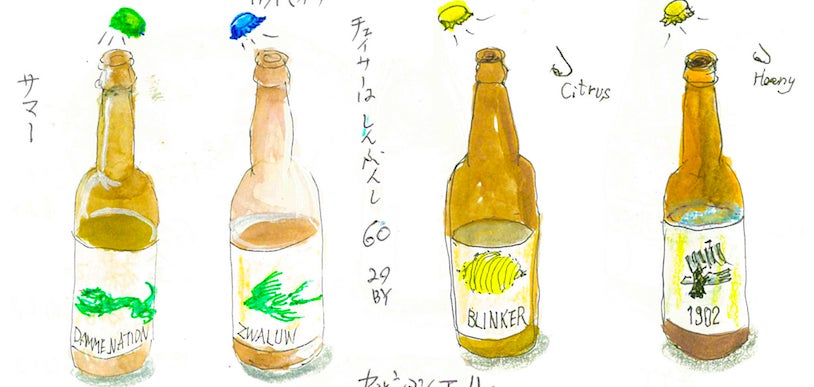 サマー
DAMMENATION
ZWALUW
チェイサーは しんぶんし
60
29
BY
Citrus
BLINKER
1902